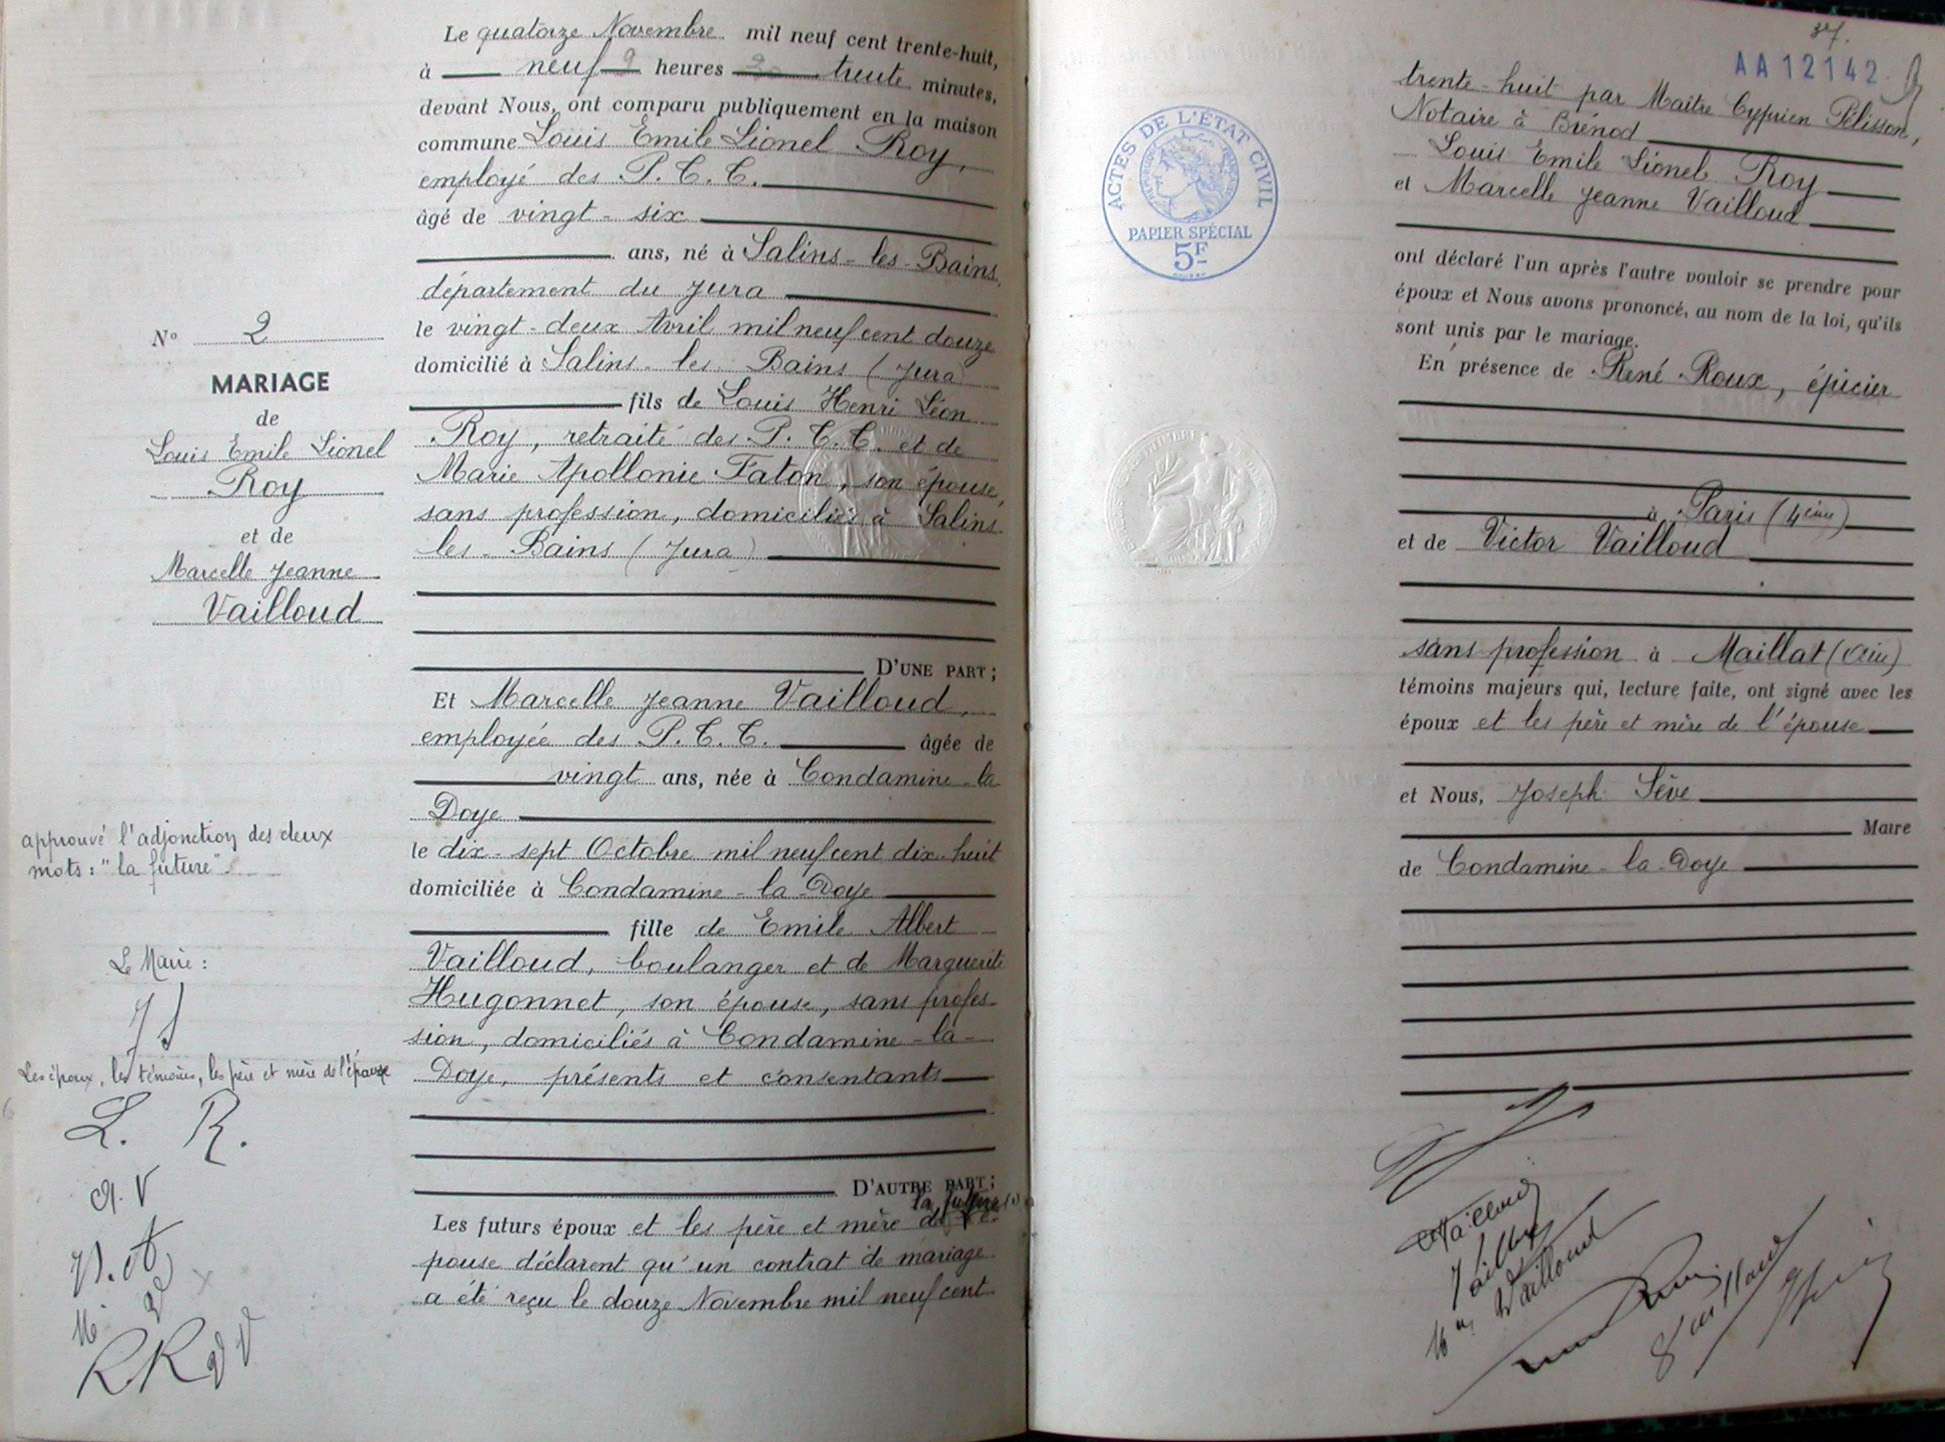 N° 2
MARIAGE
de
Louis Emile Lionel
Roy
et de
Marcelle Jeanne
Vailloud
approuvé l'adjonction des deux
mots : "la future"
Le Maire :
J S
Les époux, les témoins, les père et mère de l'épouse
L. R.
RR
Le quatorze Novembre mil neuf cent trente-huit,
à neuf heures trente minutes,
devant Nous, ont comparu publiquement en la maison
commune Louis Emile Lionel Roy,
employé des P.T.T.
âgé de vingt-six
ans, né à Salins-les-Bains,
département du Jura
le vingt-deux Avril mil neuf cent douze
domicilié à Salins-les-Bains (Jura)
fils de Louis Henri Léon
Roy, retraité des P.T.T. et de
Marie Apollonie Faton, son épouse,
sans profession, domiciliés à Salins
les-Bains (Jura)
D'UNE PART ;
Et Marcelle Jeanne Vailloud,
employée des P.T.T. âgée de
vingt ans, née à Condamine-la
Doye
le dix-sept Octobre mil neuf cent dix-huit
domiciliée à Condamine-la-Doye
fille de Emile Albert
Vailloud, boulanger et de Marguerite
Hugonnet, son épouse, sans profes-
sion, domiciliés à Condamine-la-
Doye, présents et consentants
D'AUTRE PART ;
la future
Les futurs époux et les père et mère de l'é-
pouse déclarent qu'un contrat de mariage
a été reçu le douze Novembre mil neuf cent
37.
AA12142
trente-huit par Maître Cyprien Pélisson,
Notaire à Brénod
Louis Emile Lionel Roy
et Marcelle Jeanne Vailloud
ont déclaré l'un après l'autre vouloir se prendre pour
époux et Nous avons prononcé, au nom de la loi, qu'ils
sont unis par le mariage.
En présence de René Roux, épicier
à Paris (4ème)
et de Victor Vailloud
sans profession à Maillat (Ain)
témoins majeurs qui, lecture faite, ont signé avec les
époux et les père et mère de l'épouse
et Nous, Joseph Sève
Maire
de Condamine-la-Doye
Vailloud
ACTES DE L'ÉTAT CIVIL
RÉPUBLIQUE FRANÇAISE
PAPIER SPÉCIAL
5F